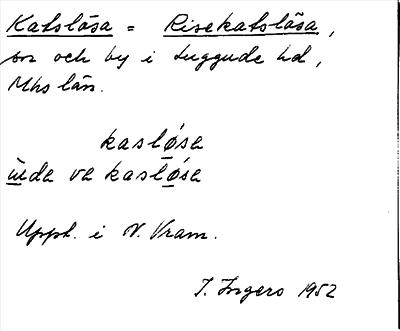 Katslösa = Risekatslösa,
sn och by i Luggude hd,
Mhs län.
kaslǿsa
ìnda va kaslǿsa
Uppt. i N. Vram.
I. Ingers 1952